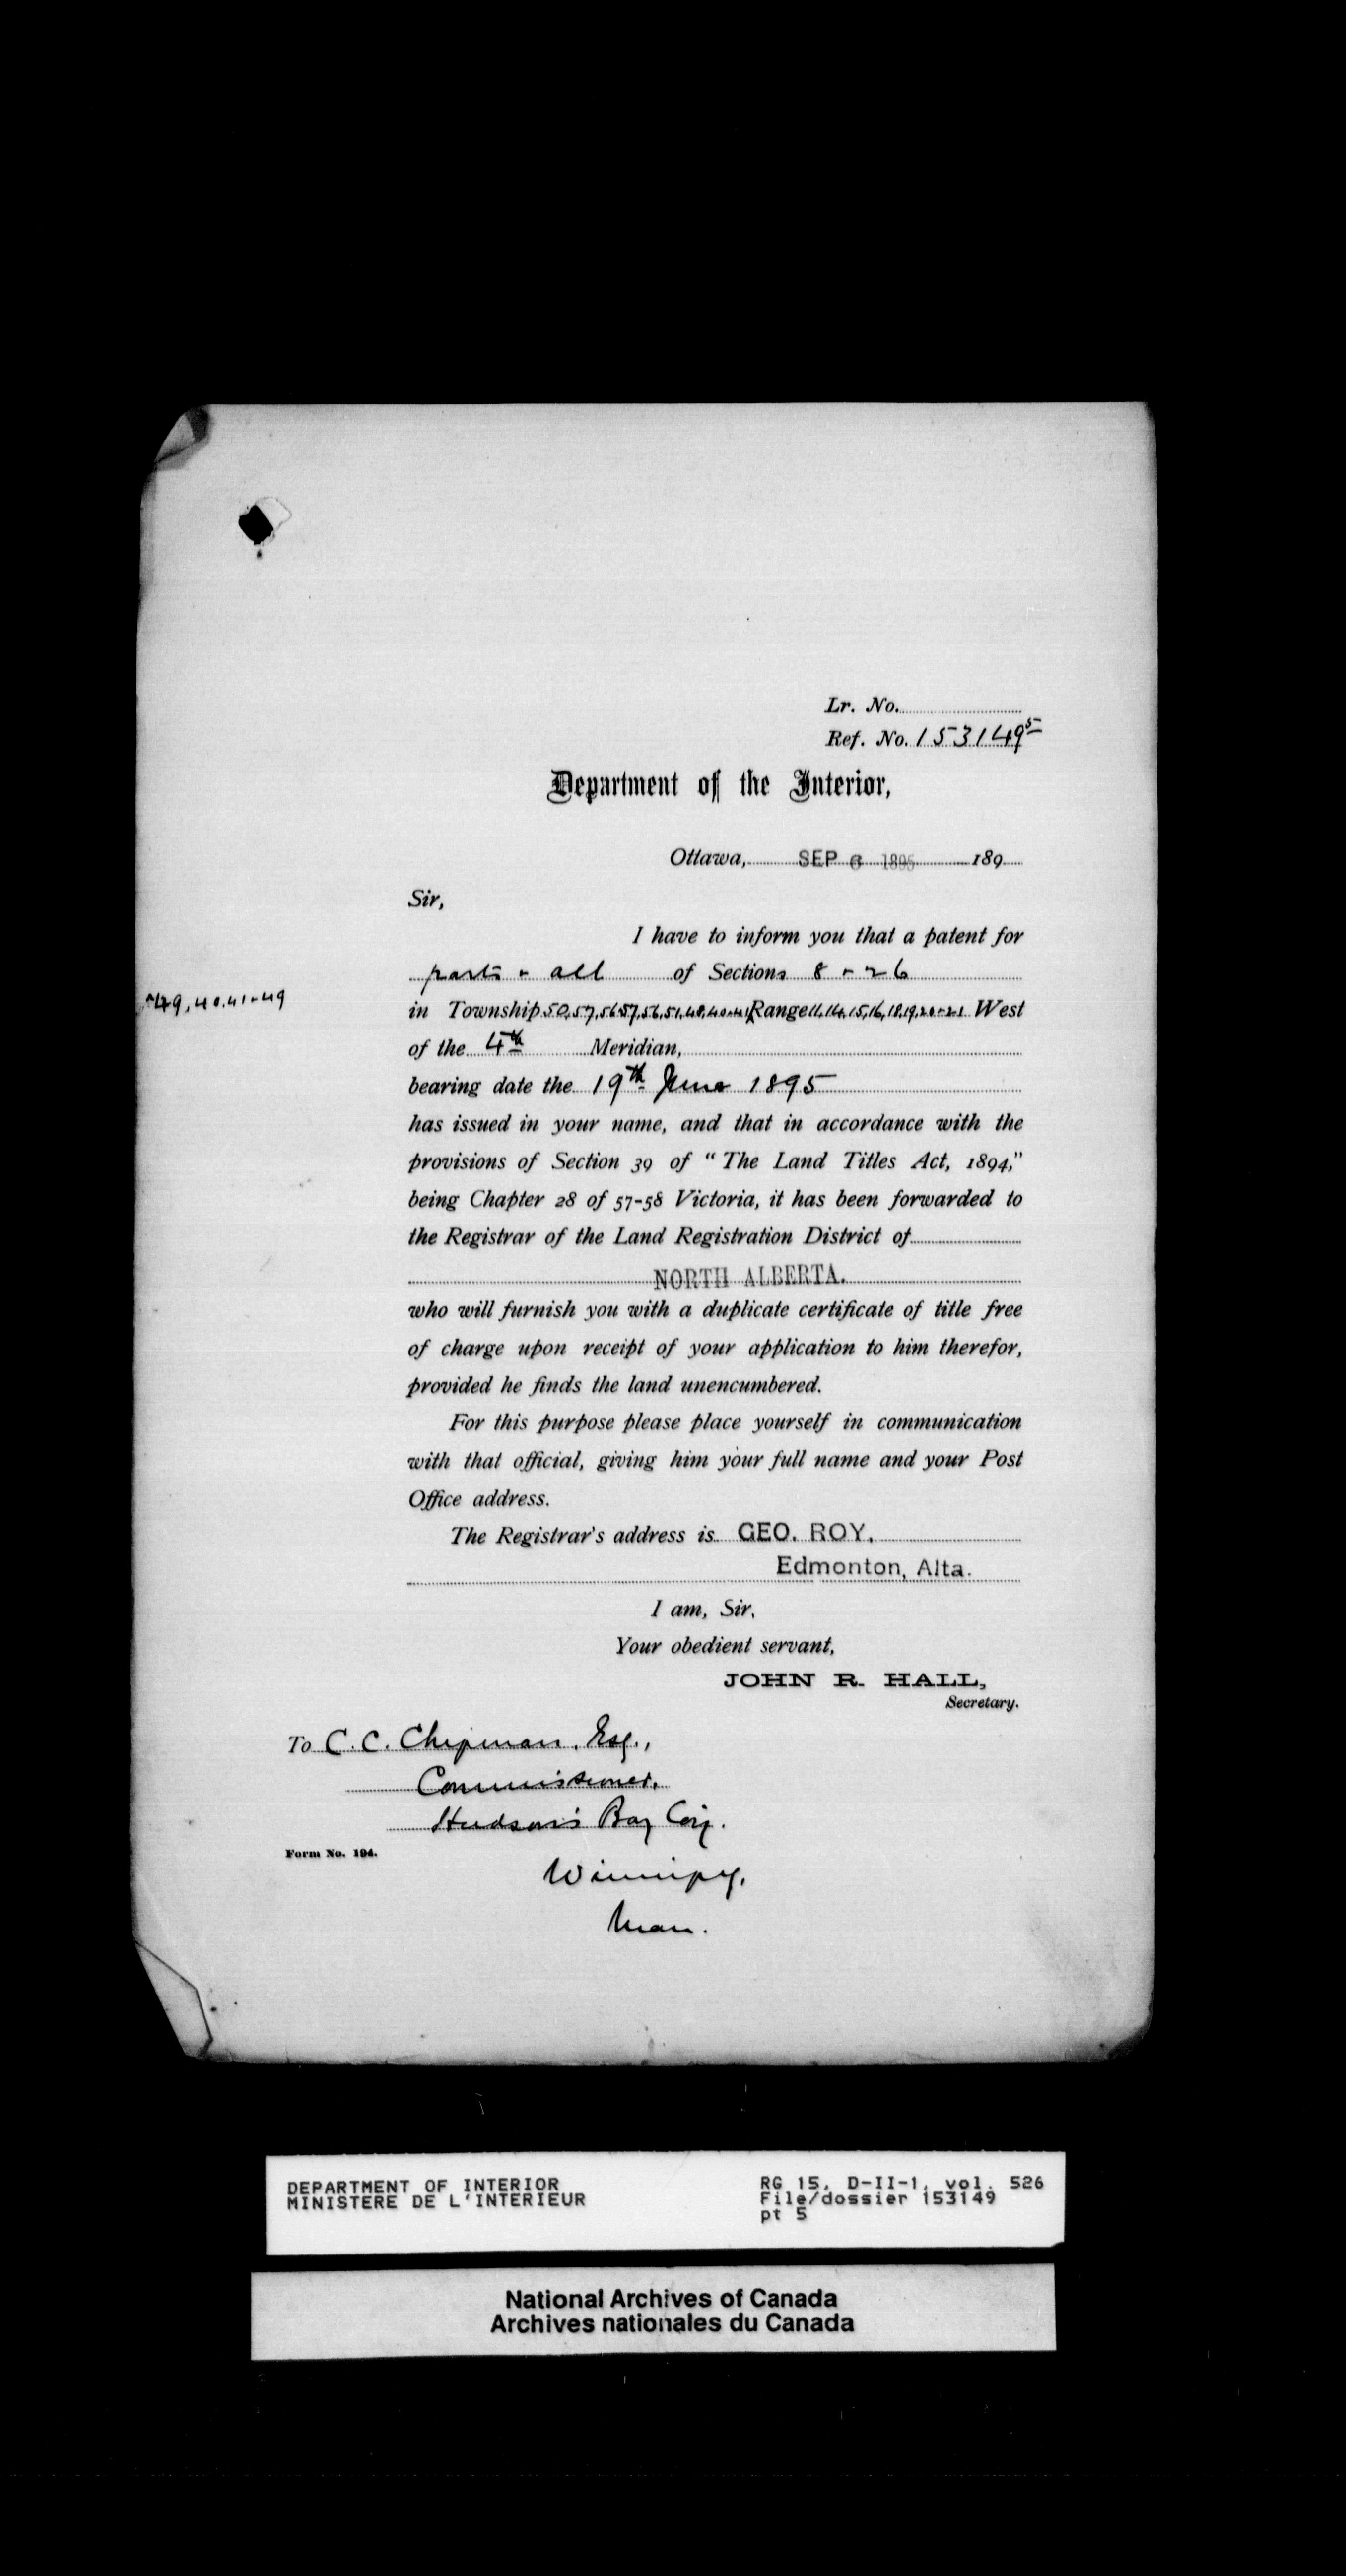 Lr. No.
Ref. No. 153149 5
Department of the Interior,
Ottawa, SEP 6 1895 189
Sir,
I have to inform you that a patent for
parts & all of Sections 8 & 26
^49, 40, 41 & 49
in Township 50, 57, 56, 57, 56, 51, 48, 40, 41 Range 11, 14, 15, 16, 18, 19, 20 & 21 West
of the 4th Meridian,
bearing date the 19th June 1895
has issued in your name, and that in accordance with the
provisions of Section 39 of "The Land Titles Act, 1894,"
being Chapter 28 of 57-58 Victoria, it has been forwarded to
the Registrar of the Land Registration District of
NORTH ALBERTA.
who will furnish you with a duplicate certificate of title free
of charge upon receipt of your application to him therefor,
provided he finds the land unencumbered.
For this purpose please place yourself in communication
with that official, giving him your full name and your Post
Office address.
The Registrar's address is GEO. ROY,
Edmonton, Alta.
I am, Sir,
Your obedient servant,
JOHN R. HALL,
Secretary.
To C. C. Chipman, Esq.,
Commissioner,
Hudson's Bay Coy.
Form No. 194.
Winnipeg,
Man.
DEPARTMENT OF INTERIOR
MINISTERE DE L'INTERIEUR
RG 15, D-II-1, vol. 526
File/dossier 153149
pt 5
National Archives of Canada
Archives nationales du Canada